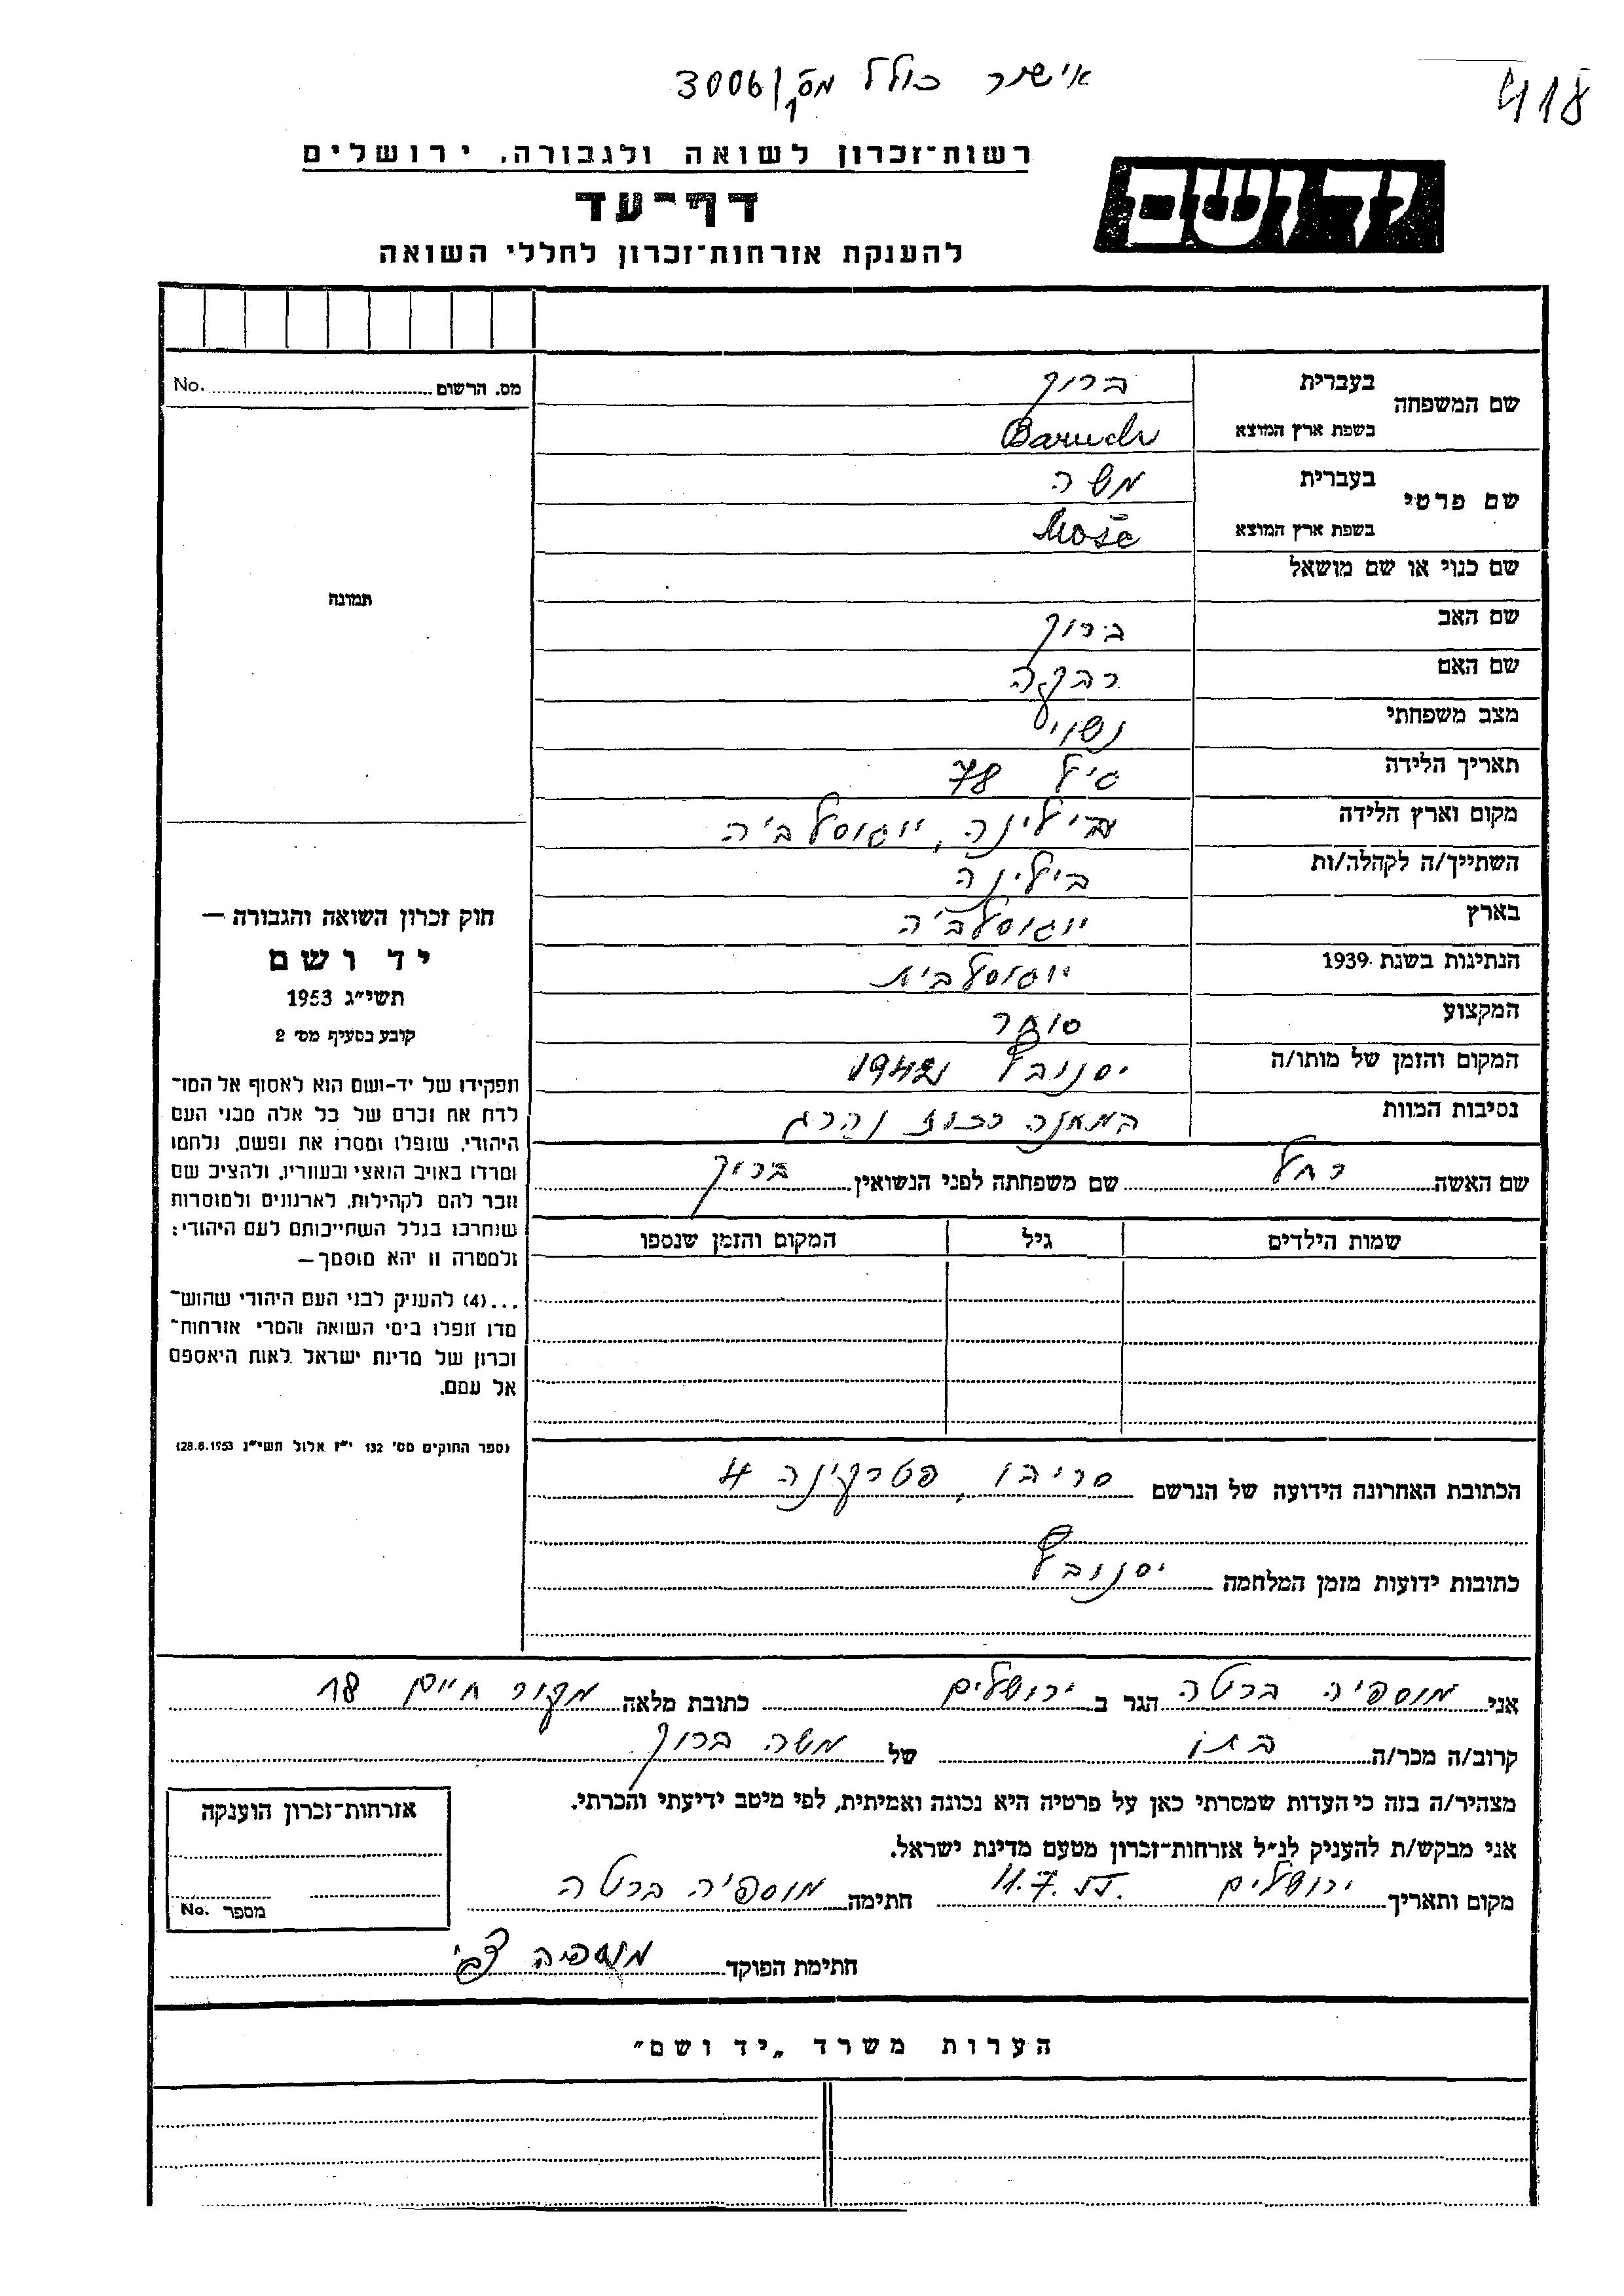 418
אישור כולל מס' 3006/1
יד ושם
רשות־זכרון לשואה ולגבורה, ירושלים
דף־עד
להענקת אזרחות־זכרון לחללי השואה
מס. הרשום No.
תמונה
שם המשפחה בעברית ברוך
בשפת ארץ המוצא Baruch
שם פרטי בעברית משה
בשפת ארץ המוצא Moše
שם כנוי או שם מושאל
שם האב ברוך
שם האם רבקה
מצב משפחתי נשוי
תאריך הלידה גיל 78
מקום וארץ הלידה בילינה, יוגוסלביה
השתייך/ה לקהלה/ות בילינה
בארץ יוגוסלביה
הנתינות בשנת 1939 יוגוסלבית
המקצוע סוחר
המקום והזמן של מותו/ה יסנובץ 1942
נסיבות המוות במחנה רכוז נהרג
שם האשה רחל שם משפחתה לפני הנשואין ברוך
שמות הילדים גיל המקום והזמן שנספו
הכתובת האחרונה הידועה של הנרשם סריבו, פטרקינה 4
כתובות ידועות מזמן המלחמה יסנובץ
חוק זכרון השואה והגבורה —
יד ושם
תשי״ג 1953
קובע בסעיף מס׳ 2
תפקידו של יד-ושם הוא לאסוף אל המו־
לדת את זכרם של כל אלה מבני העם
היהודי, שנפלו ומסרו את נפשם, נלחמו
ומרדו באויב הנאצי ובעוזריו, ולהציב שם
וזכר להם לקהילות, לארגונים ולמוסדות
שנחרבו בגלל השתייכותם לעם היהודי;
ולמטרה זו יהא מוסמך—
...(4) להעניק לבני העם היהודי שהוש־
מדו ונפלו בימי השואה והמרי אזרחות־
זכרון של מדינת ישראל לאות היאספם
אל עמם.
(ספר החוקים מס׳ 132 י״ז אלול תשי״ג 28.8.1953)
אני מוספיה ברטה הגר ב ירושלים כתובת מלאה מקור חיים 18
קרוב/ה מכר/ה בתו של משה ברוך
מצהיר/ה בזה כי העדות שמסרתי כאן על פרטיה היא נכונה ואמיתית, לפי מיטב ידיעתי והכרתי.
אני מבקש/ת להעניק לנ״ל אזרחות־זכרון מטעם מדינת ישראל.
מקום ותאריך ירושלים 11.7.55. חתימה מוספיה ברטה
חתימת הפוקד מוספיה צבי
אזרחות־זכרון הוענקה
מספר No.
הערות משרד „יד ושם״